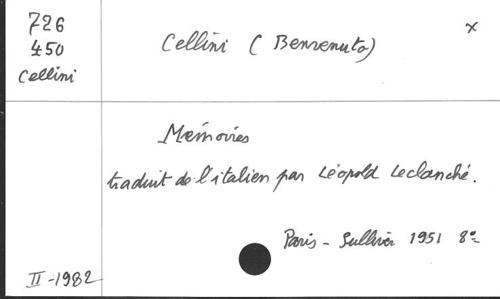 726
450
Cellini
Cellini (Benvenuto)
x
Mémoires
traduit de l'italien par Léopold Leclanché.
Paris - Sulliver 1951 8º
II-1982